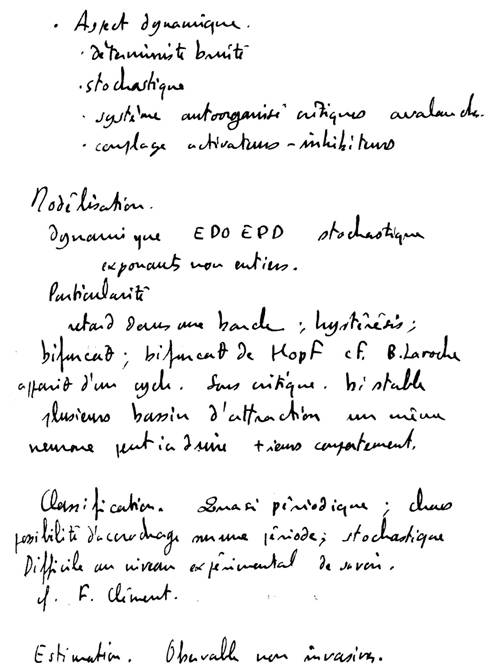 . Aspect dynamique.
. déterministe bruité
. stochastique
. système autoorganisé critiques avalanche.
. couplage activateurs - inhibiteurs
Modélisation.
dynamique EDO EPD stochastique
exponants non entiers.
Particularité
retard dans une boucle ; hystérésis ;
bifurcat° ; bifurcat° de Hopf cf. B. Laroche
apparit° d'un cycle. Sous critique. bistable
plusieurs bassin d'attraction un même
neurone peut +ieurs comportement.
Classification. Quasi périodique ; chaos
possibilité d'accrochage sur une période ; stochastique
Difficile au niveau expérimental de savoir.
cf. F. Clément.
Estimation. Observable non invasive.